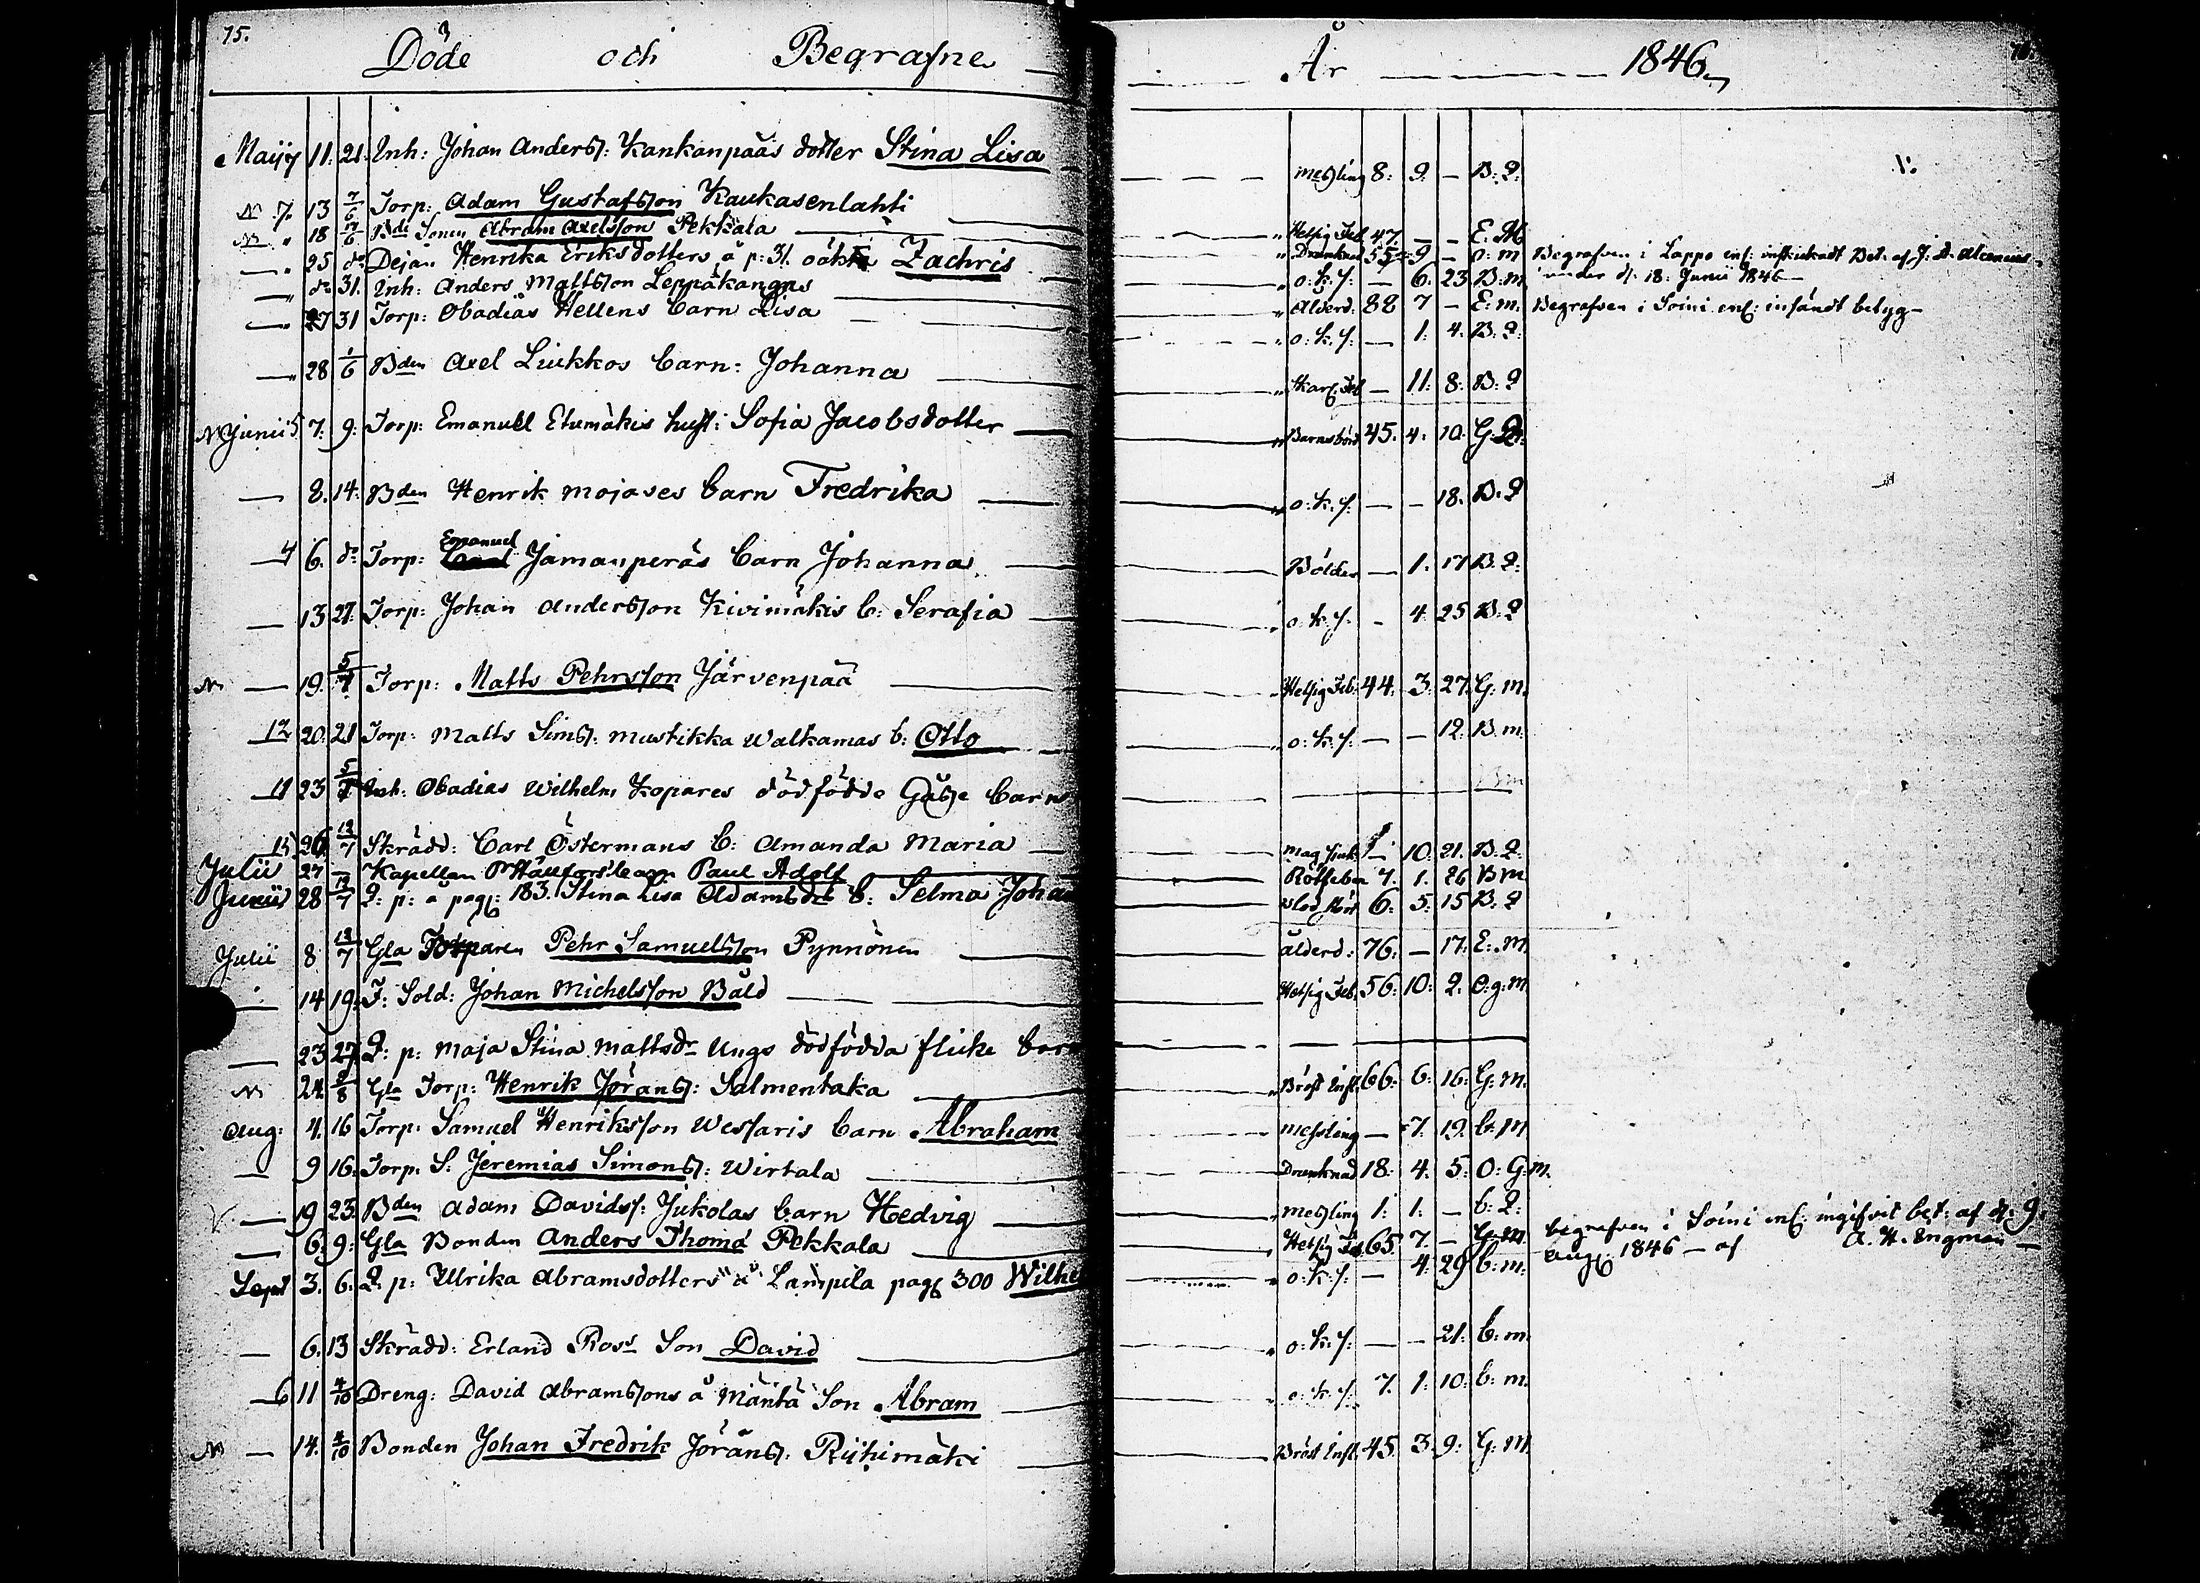 75. Döde och Begrafne År 1846 76.
Maijy 11. 21. Inh: Johan Anderss: Kankanpääs dotter Stina Lisa messling 8: 9. — B: Q:
N 7. 13 7/6 Torp: Adam Gustafsson Kaukasenlahti Helsig Feb. 47. — — E. M
N " 18 7/6 Bde Sonen Abram Axelsson Pekkala Drunknad 55 9 — o: m Begrafven i Lappo enl:
" 25 do Dejan Henrika Eriksdotters å p: 31. oäkta Zachris o: k: s: — 6. 23 B: m under d. 18. Junii 1846
" do 31. Inh: Anders Mattsson Leppäkangas Ålderd: 82 7 — E: m. Begrafven i Soini enl: insändt betyg
" 27 31 Torp: Obadias Hellens barn Lisa o: k: s: — 1: 4. B: Q:
" 28 1/6 Bden Axel Liukkos barn: Johanna Skarl: Feb — 11: 8: B: Q
N Junii 5 7. 9: Torp: Emanuel Etumäkis hust: Sofia Jacobsdotter Barnsbörd 45. 4: 10. G. Q:
— 8. 14. Bden Henrik Mojases barn Fredrika o: k. s: — — 18. B. Q
4 6. do Torp: Emanuel Jamanperäs barn Johanna Bölder — 1. 17 B. Q:
— 13 27. Torp: Johan Andersson Kivimäkis b: Serafia o: k: s: — 4. 25 B: Q
N — 19. 5/7 Torp: Matts Pehrsson Järvenpää Helsig Feb: 44: 3: 27. G: m.
12 20. 21 Torp: Matts Simss: Mustikka Walkamas b: Otto o: k: s: — — 12. B. m.
11 23 5/7 Inh: Obadias Wilhelm Kopares dödfödde Gåsse barn — B m
15 26 12/7 Skrädd: Carl Östermans b: Amanda Maria 10. 21. B. Q:
Julii 27 — Kapellan Paul Adolf Rötfeber 7. 1. 26 B m
Junii 28 12/7 Q: p: å pag: 183. Stina Lisa Adamsdrs b: Selma Joha 6: 5: 15 B: Q
Julii 8 12/7 Gla Torparen Pehr Samuelsson Pynnönen ålderd: 76. — 17: E: M
" 14 19: F: Sold: Johan Michelsson Båld Helsig Feb. 56: 10: 2. O: g: m
— 23 27 Q: p: Maja Stina Mattsdr Ungs dödfödda flicke barn
N 24. 2/8 Gla Torp: Henrik Jöranss: Salmentaka Bröst Infl. 66: 6: 16: G: m.
Aug: 4. 16 Torp: Samuel Henriksson Wesaris barn Abraham messling — 7. 19. b. M
— 9 16. Torp: S. Jeremias Simonss: Wirtala Drunknad 18: 4. 5: O: G: m.
V. — 19 23. Bden Adam Davidss: Jukolas barn Hedvig messling 1: 1. — b: Q:
— 6: 9: Gla Bonden Anders Thoma Pekkala Helsig Feb 65. 7. — G: M begrafven i Soini enl: ingifvit bet: af d. 9.
Sept 3. 6. Q. p: Ulrika Abramsdotters å Lampila pag 300 Wilhe o: k: s: — 4: 29 b: m: Aug. 1846 — af A. H. Engman
— 6. 13 Skrädd: Erland Ross Son David o: k: s: — — 21: b: m.
6 11 4/10 Dreng: David Abramssons å Mäntä Son Abram o: k. s: 7. 1: 10: b: m.
N — 14. 4/10 Bonden Johan Fredrik Jöranss. Riihimäki Bröst Infl. 45. 3. 9: G: M